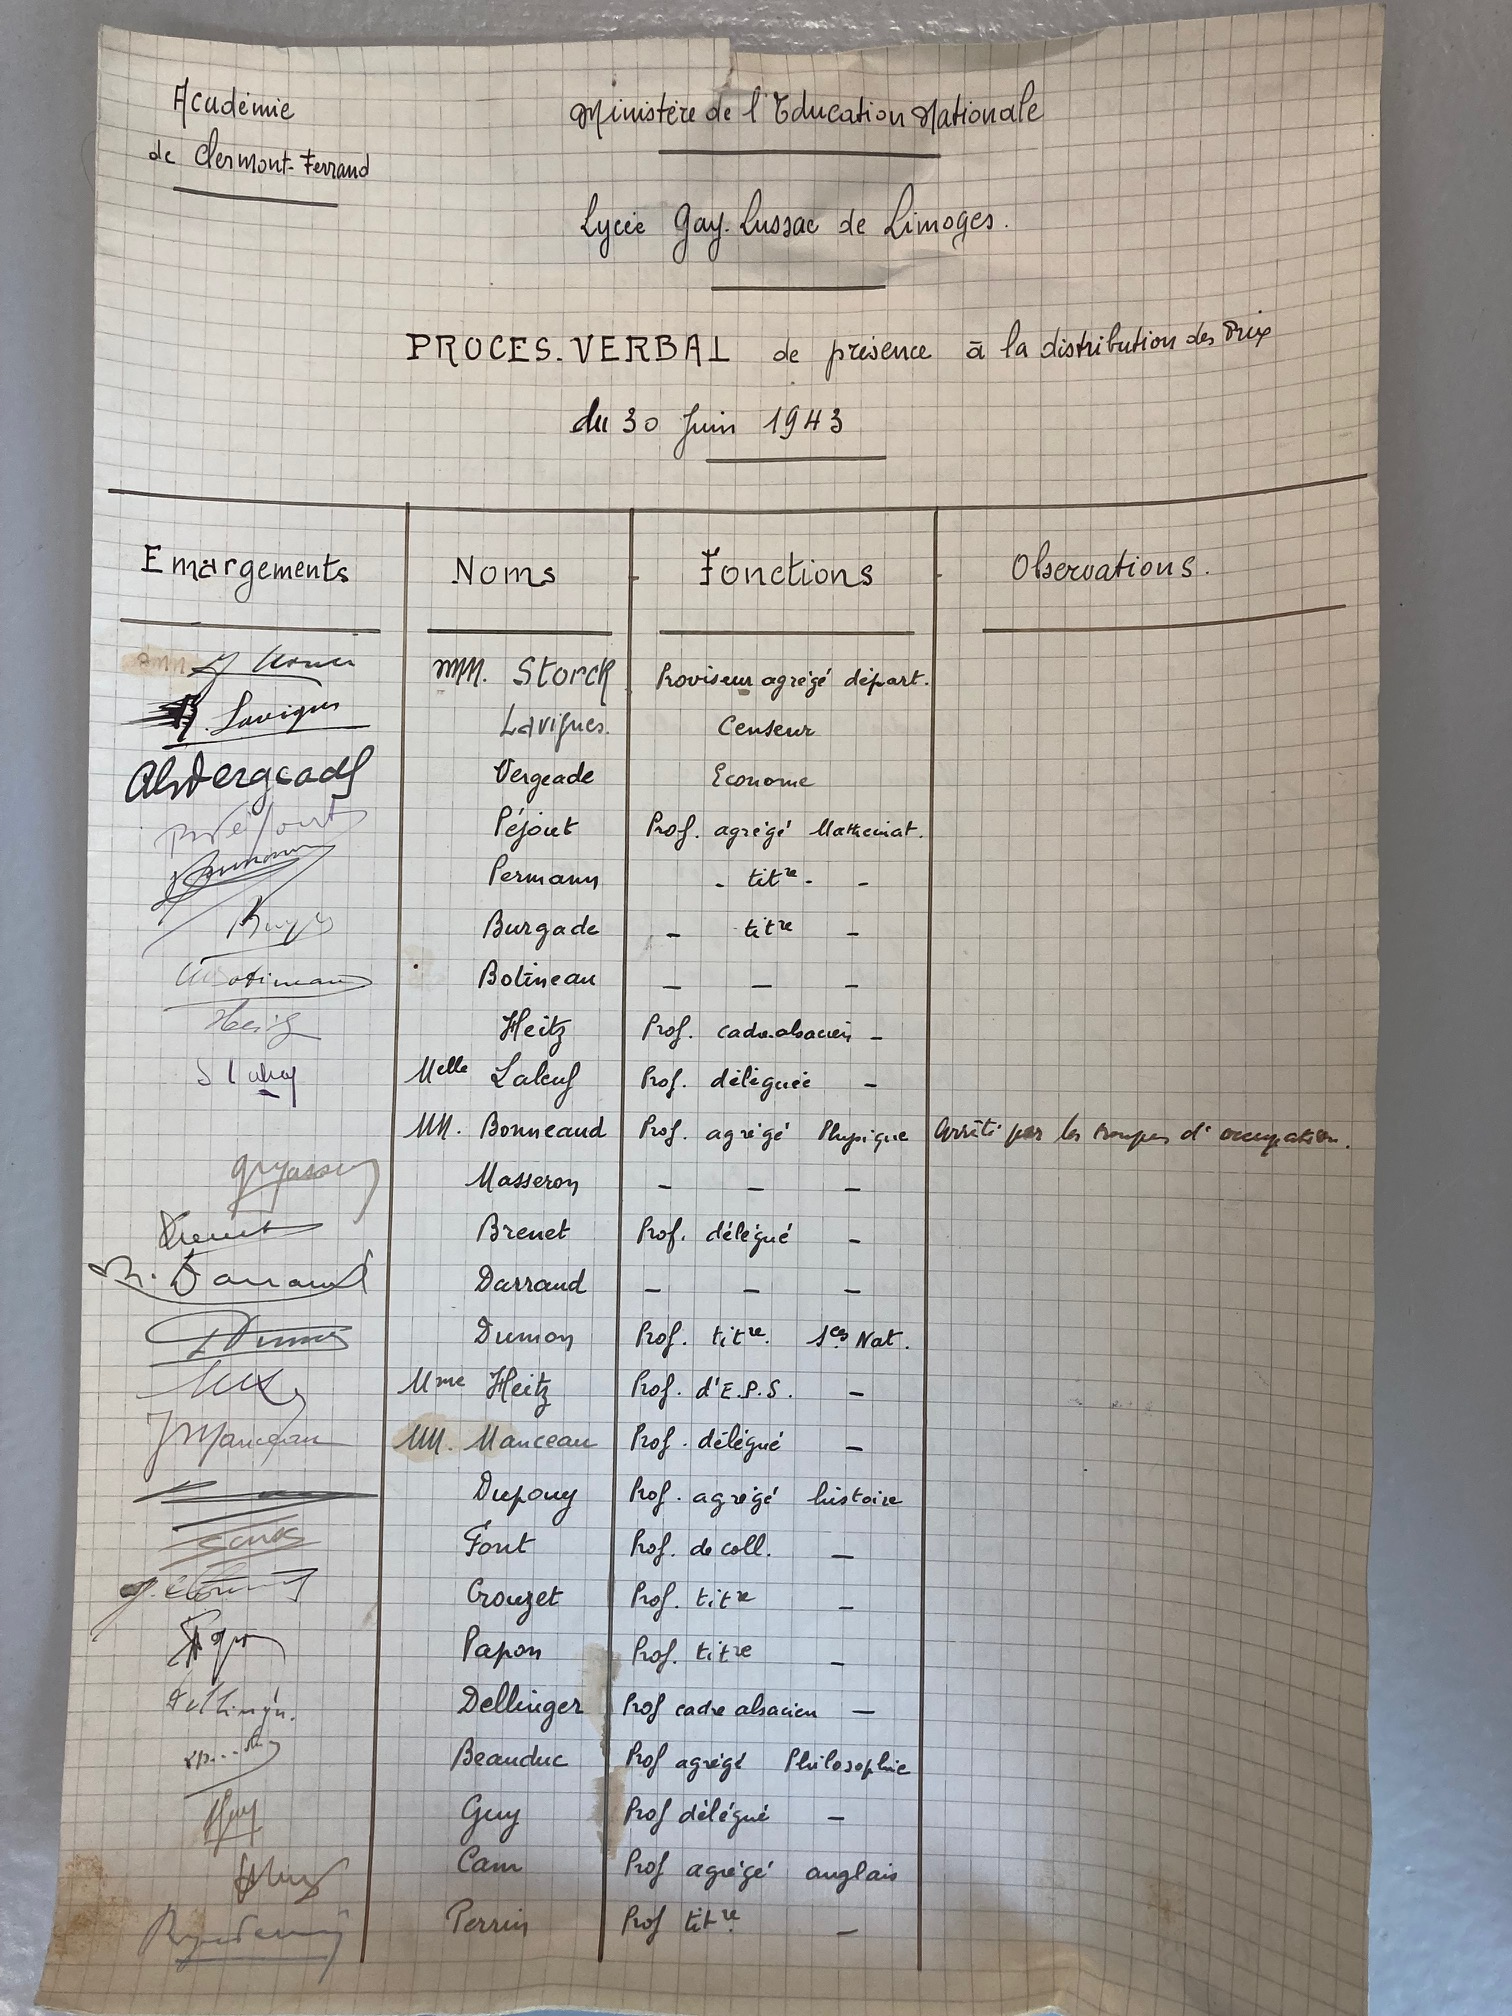 Académie
de Clermont-Ferrand
Ministère de l'Education Nationale
Lycée Gay. Lussac de Limoges.
PROCES. VERBAL de présence à la distribution des Prix
du 30 Juin 1943
Emargements Noms Fonctions Observations.
MM. Storck Proviseur agrégé départ.
Lavignes Lavignes. Censeur
Vergeade Econome
Péjout Prof. agrégé Mathemat.
Permann - titre - -
Burgade - titre -
Botineau Botineau - - -
Heitz Heitz Prof. cadre alsacien -
Melle Laleuf Prof. déléguée -
MM. Bonneaud Prof. agrégé Physique Arrêté par les troupes d'occupation.
Masseron - - -
Brenet Brenet Prof. délégué -
Darraud Darraud - - -
Dumon Prof. titre. Sces Nat.
Mme Heitz Prof. d'E.P.S. -
JManceau MM. Manceau Prof. délégué -
Dupouy Prof. agrégé histoire
Font Prof. de coll. -
Crouzet Prof. titre -
Papon Prof. titre -
Dellinger. Dellinger Prof cadre alsacien -
Beauduc Prof agrégé Philosophie
Guy Guy Prof délégué -
Cam Prof agrégé anglais
Perrin Prof titre. -